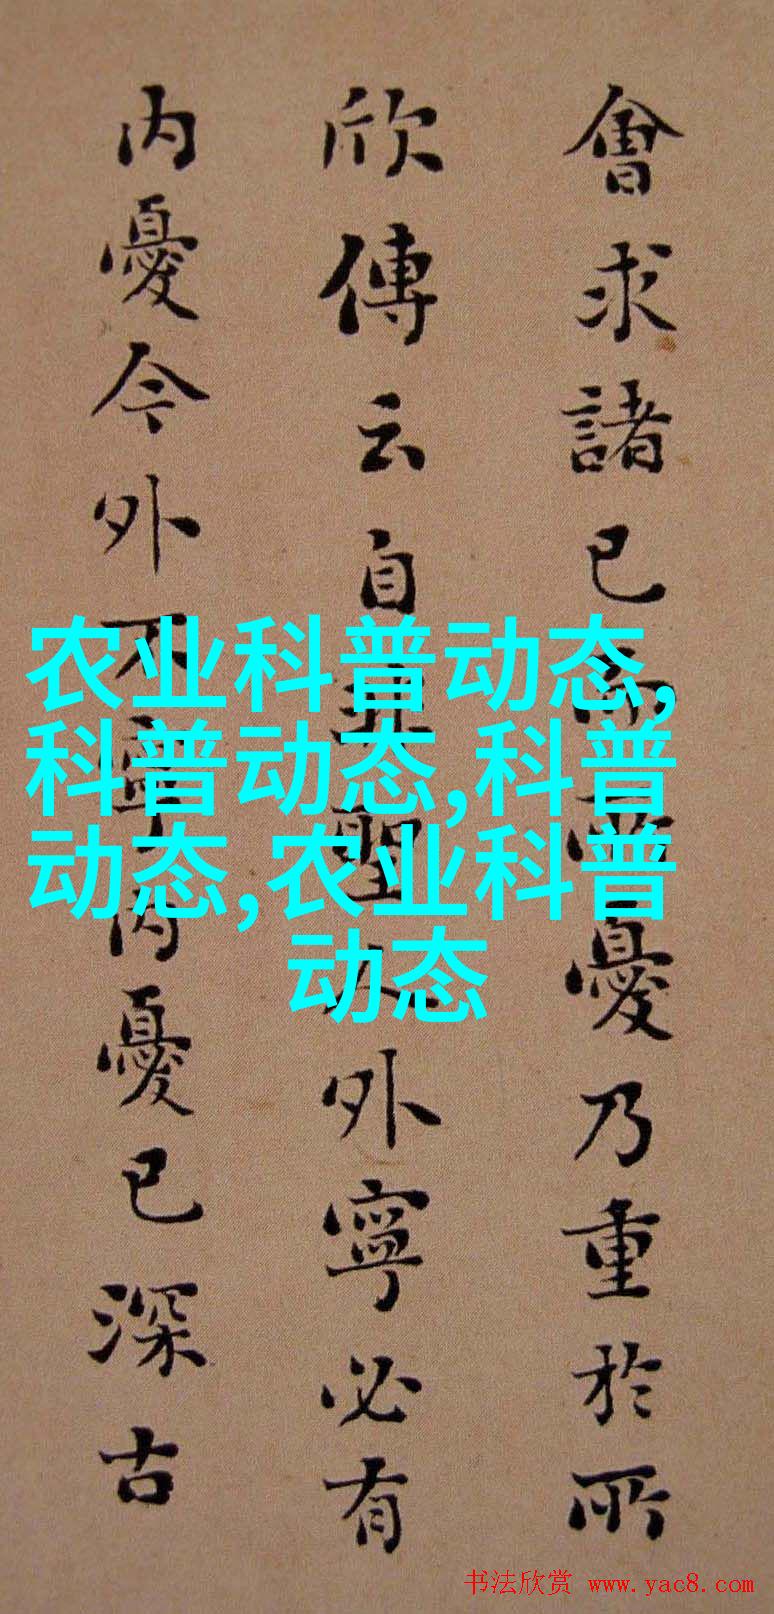 會求諸己而所憂乃重於所
欣傳云自非聖人外寧必有
内憂今外不寧内憂已深古
农业科普动态,
科普动态,科普
动态,农业科普
动态
书法欣赏 www.yac8.com